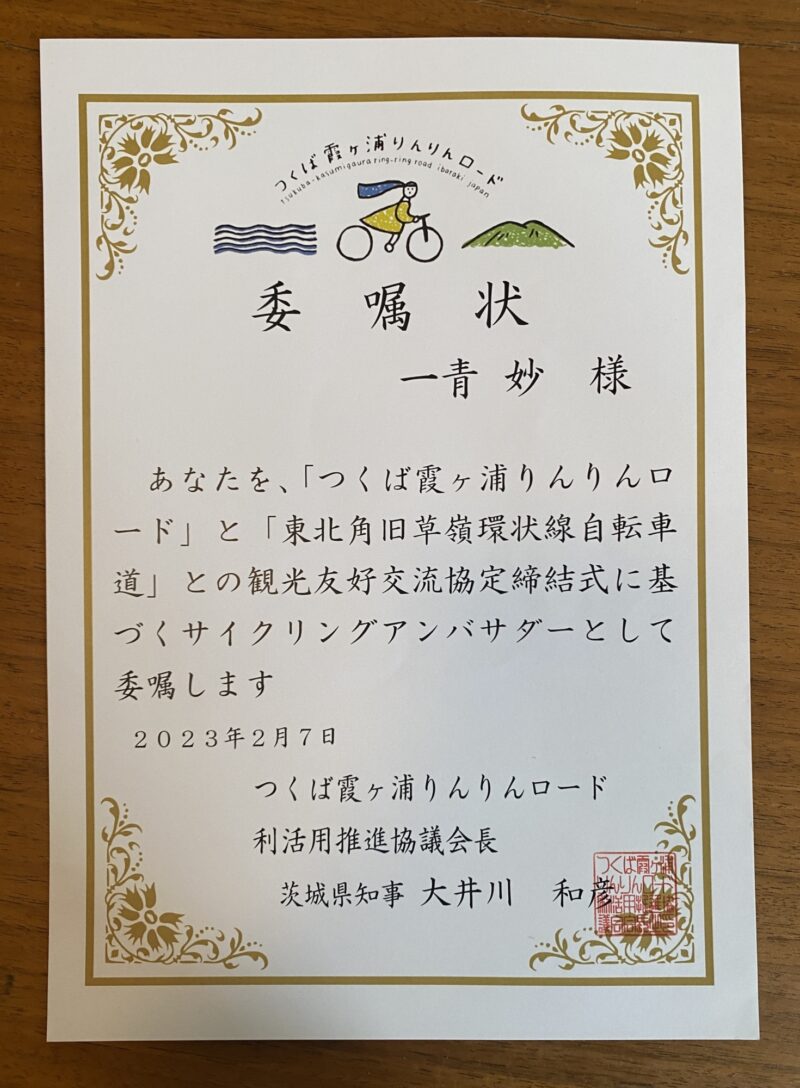 つくば霞ヶ浦りんりんロード
tsukuba-kasumigaura ring-ring road ibaraki japan
委嘱状
一青 妙 様
あなたを、「つくば霞ヶ浦りんりんロ
ード」と「東北角旧草嶺環状線自転車
道」との観光友好交流協定締結式に基
づくサイクリングアンバサダーとして
委嘱します
２０２３年２月７日
つくば霞ヶ浦りんりんロード
利活用推進協議会長
茨城県知事 大井川 和彦